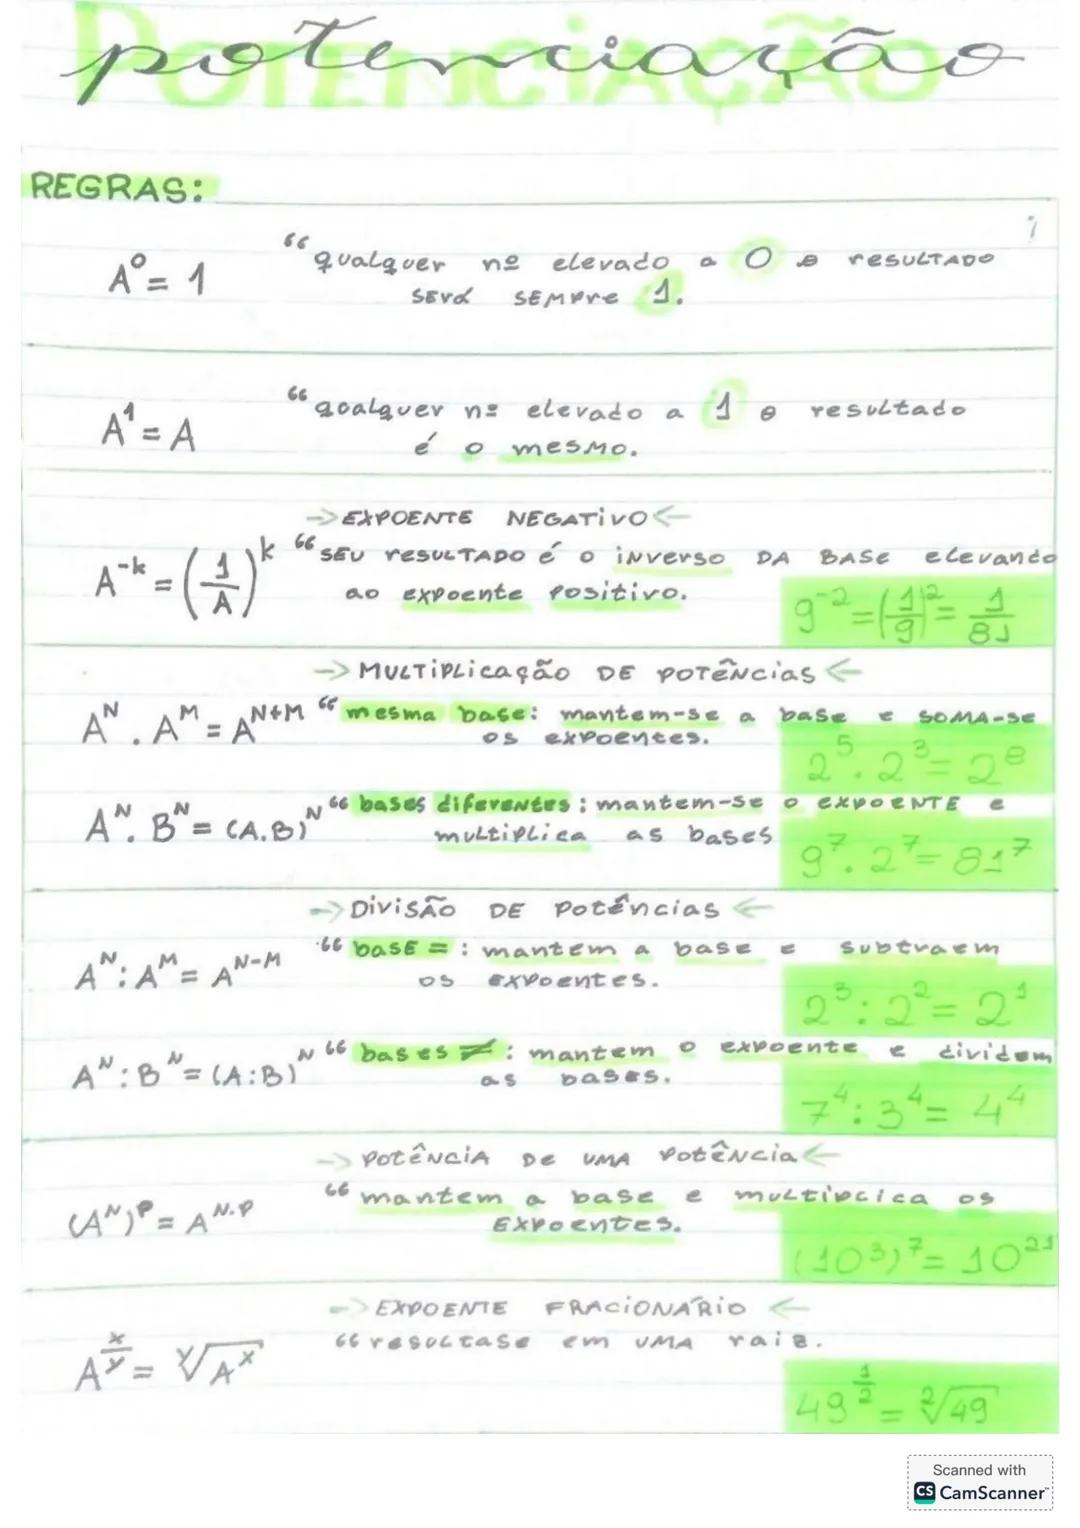 potenciação
POTENCIAÇÃO
REGRAS:
A⁰ = 1 “qualquer nº elevado a 0 o resultado
será sempre 1.
A¹ = A “qualquer nº elevado a 1 o resultado
é o mesmo.
→ EXPOENTE NEGATIVO ←
A⁻ᵏ = (1/A)ᵏ “SEU RESULTADO é o inverso DA BASE elevando
ao expoente positivo.
9⁻² = (1/9)² = 1/81
→ MULTIPLICAÇÃO DE POTÊNCIAS ←
Aᴺ . Aᴹ = Aᴺ⁺ᴹ “mesma base: mantem-se a base e SOMA-SE
os expoentes.
2⁵ . 2³ = 2⁸
Aᴺ . Bᴺ = (A.B)ᴺ “bases diferentes: mantem-se o expoente e
multiplica as bases
9⁷ . 2⁷ = 81⁷
→ DIVISÃO DE POTÊNCIAS ←
Aᴺ : Aᴹ = Aᴺ⁻ᴹ “base = : mantem a base e subtraem
os expoentes.
2³ : 2² = 2¹
Aᴺ : Bᴺ = (A:B)ᴺ “bases ≠ : mantem o expoente e dividem
as bases.
7⁴ : 3⁴ = 4⁴
→ POTÊNCIA DE UMA POTÊNCIA ←
(Aᴺ)ᴾ = Aᴺ·ᴾ “mantem a base e multiplica os
Expoentes.
(10³)⁷ = 10²¹
→ EXPOENTE FRACIONÁRIO ←
A^(x/y) = ʸ√Aˣ “resultase em UMA raiz.
49^(1/2) = ²√49
Scanned with
CS CamScanner